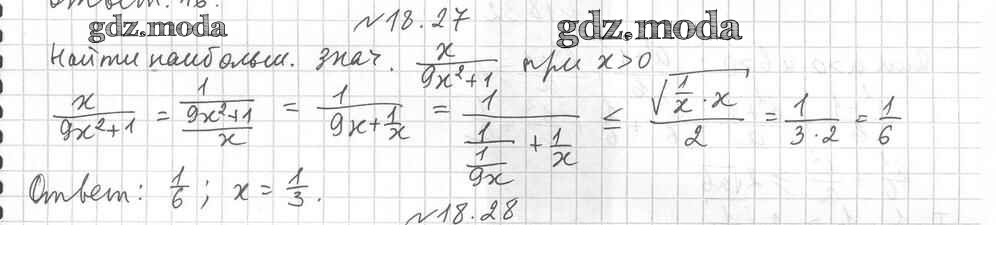 Ответ: 16.
gdz.moda
№18.27
gdz.moda
Найти наибольш. знач. x/(9x²+1) при x>0
x/(9x²+1) = 1/((9x²+1)/x) = 1/(9x+1/x) = 1/(1/(1/(9x))+1/x) ≤ √(1/x · x)/2 = 1/(3·2) = 1/6
Ответ: 1/6; x = 1/3.
№18.28